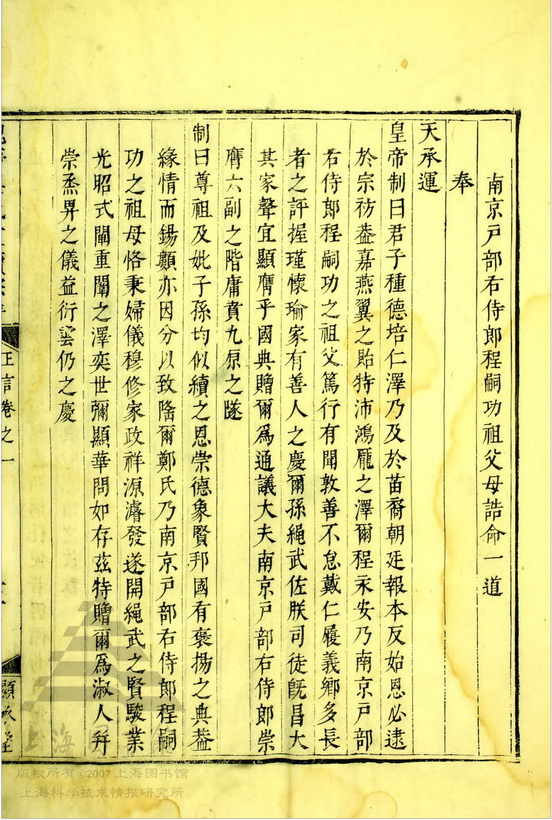 南京戸部右侍郎程嗣功祖父母誥命一道
奉
天承運
皇帝制曰君子種德培仁澤乃及於苗裔朝廷報本反始恩必逮
於宗祊蓋嘉燕翼之貽特沛鴻龎之澤爾程永安乃南京戸部
右侍郎程嗣功之祖父篤行有聞敦善不怠戴仁履義鄉多長
者之評握瑾懷瑜家有善人之慶爾孫繩武佐朕司徒旣昌大
其家聲宜顯膺乎國典贈爾爲通議大夫南京戸部右侍郎崇
膺六副之階庸賁九原之隧
制曰尊祖及妣子孫均似續之恩崇德象賢邦國有褒揚之典葢
緣情而錫類亦因分以致隆爾鄭氏乃南京戸部右侍郎程嗣
功之祖母恪秉婦儀穆修家政祥源濬發遂開繩武之賢駿業
光昭式闡重闈之澤奕世彌顯華問如存茲特贈爾爲淑人幷
崇烝畀之儀益衍雲仍之慶
王言卷之一
版权所有©2007上海图书馆
上海科学技术情报研究所